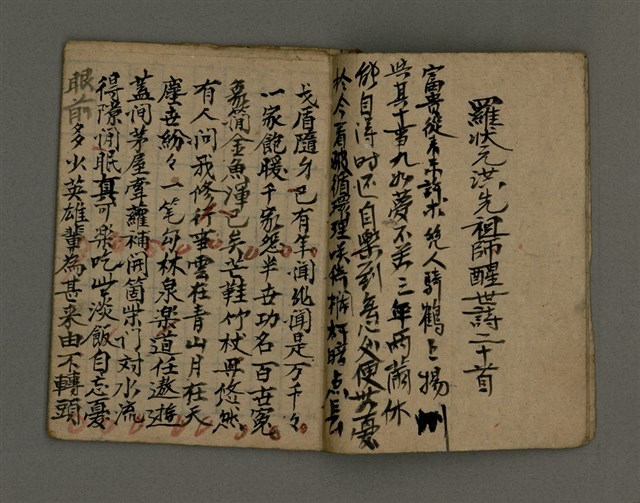 羅狀元洪先祖師醒世詩二十首
富貴從來未許求 几人騎鶴上揚州
與其十事九如夢不若三年兩薾休
能自得時还自樂到無心処便無憂
於今看破循環理笑倚欄杆暗点頭
戈盾隨身已有年闹非闹是万千々
一家飽暖千家怨半世功名百世冤
象簡金魚渾已矣芒鞋竹杖毋悠然
有人问我修行事雲在青山月在天
塵世紛々一笔勾林泉樂道任遨遊
蓋间茅屋牽蘿補闹箇柴门对水流
得隙闲眠真可樂吃些淡飯自忘憂
眼前多少英雄輩為甚来由不轉頭